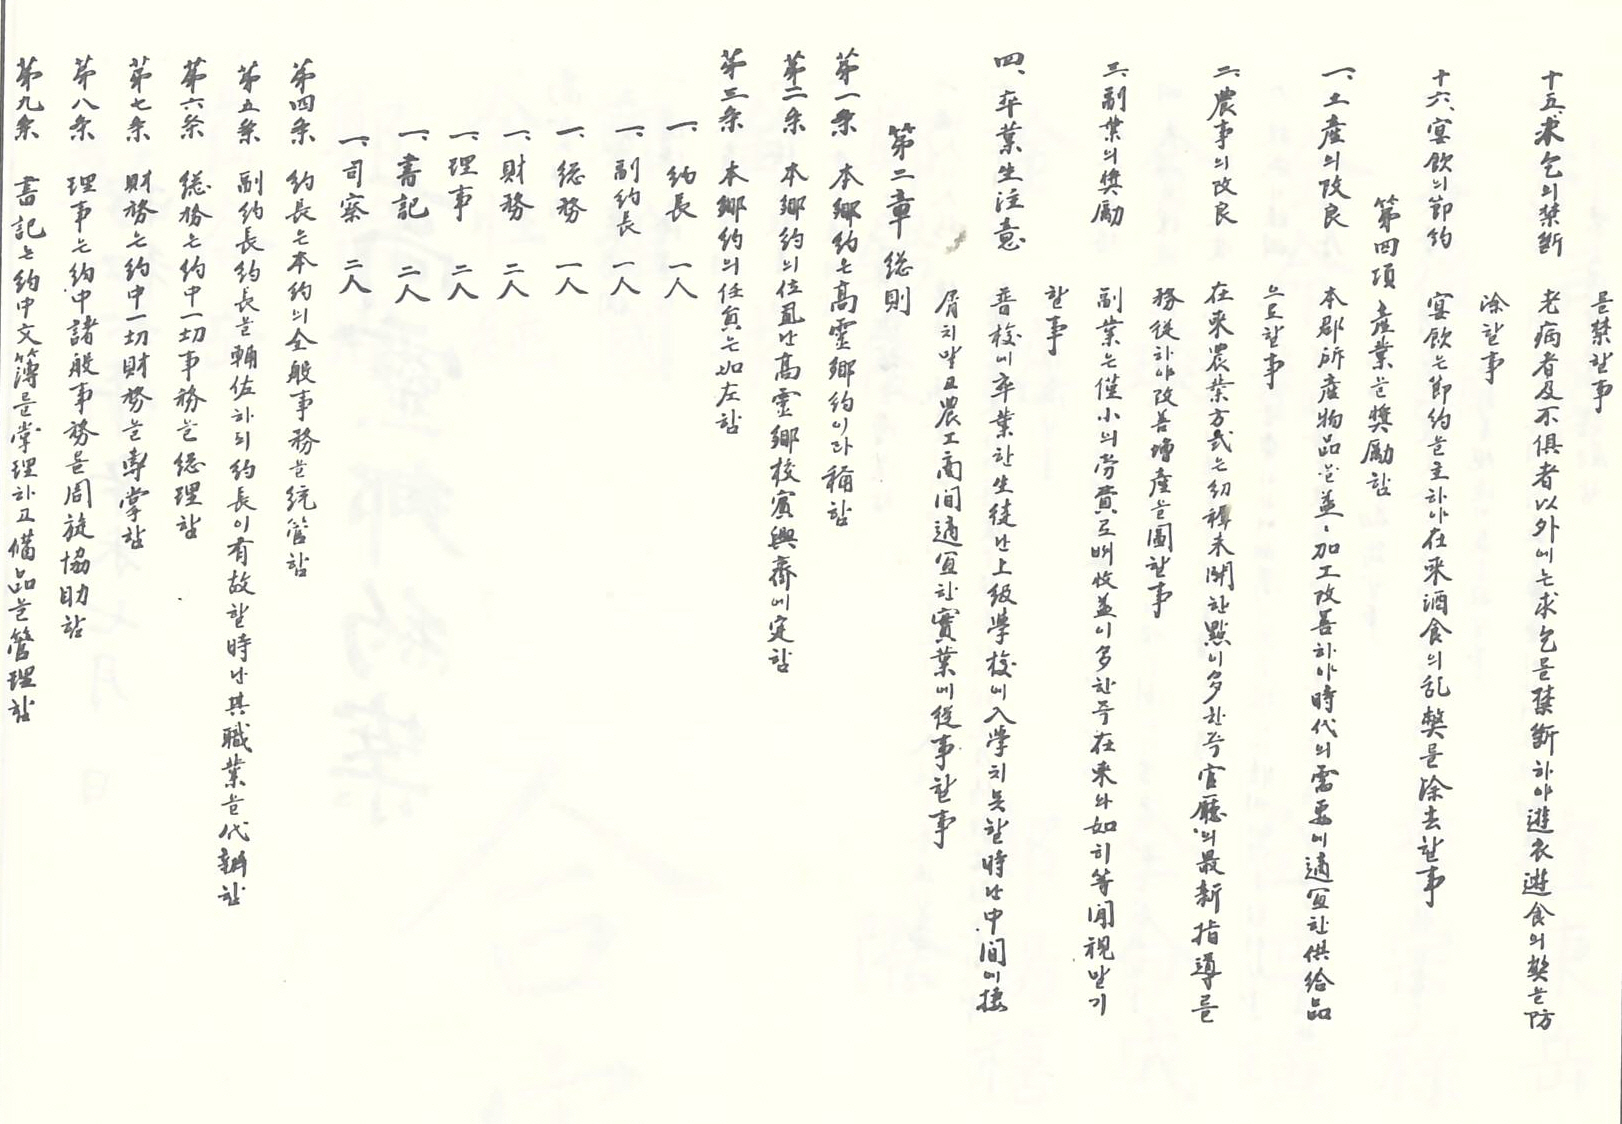 를禁할事
十五、求乞의禁斷 老病者及不俱者以外에는求乞를禁斷하야遊衣遊食의弊를防
涂할事
十六、宴飮의節約 宴飮는節約을主하야在來酒食의乱弊를涂去할事
第四項 産業을奬勵함
一、土産의改良 本郡所産物品을益〻加工改善하야時代의需要에適宜한供給品
으로할事
二、農事의改良 在來農業方式는幼穉未開한點이多한즉官廳의最新指導를
務從하야改善增産을圖할事
三、副業의奬勵 副業는僅小의労費로써收益이多한즉在來와如히等閒視말기
할事
四、卒業生注意 普校에卒業한生徒난上級學校에入學치못할時난中間에接
屑치말고農工商間適宜한實業에從事할事
第二章 総則
第一条 本鄕約는高靈鄕約이라稱함
第二条 本鄕約의位置난高靈鄕校賓興齋에定함
第三条 本鄕約의任員는如左함
一、約長 一人
一、副約長 一人
一、総務 一人
一、財務 二人
一、理事 二人
一、書記 二人
一、司察 二人
第四条 約長는本約의全般事務을統管함
第五条 副約長約長을輔佐하되約長이有故할時난其職業을代辦함
第六条 総務는約中一切事務을総理함
第七条 財務는約中一切財務을專掌함
第八条 理事는約中諸般事務를周旋協助함
第九条 書記는約中文簿를掌理하고備品을管理함